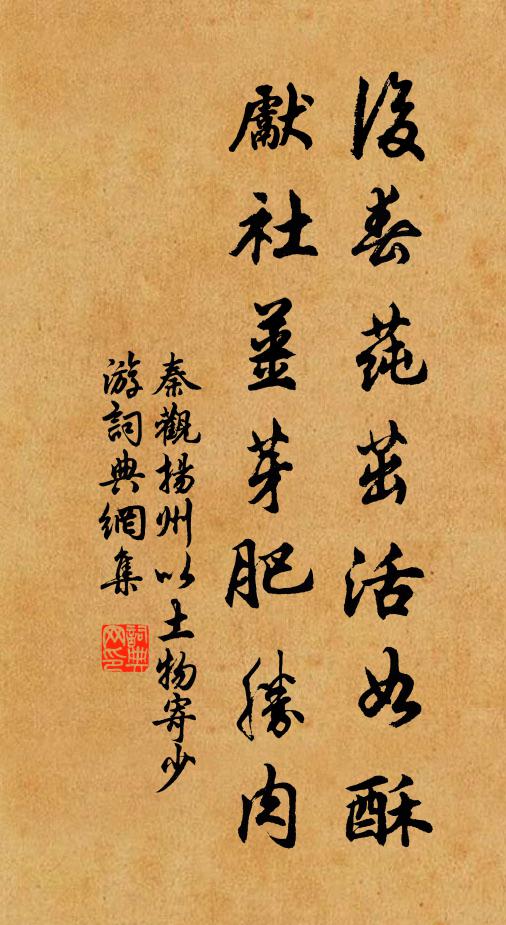 後春蒓茁活如酥
獻社薑芽肥勝肉
秦觀揚州以土物寄少
游詞典網集
詞典網印